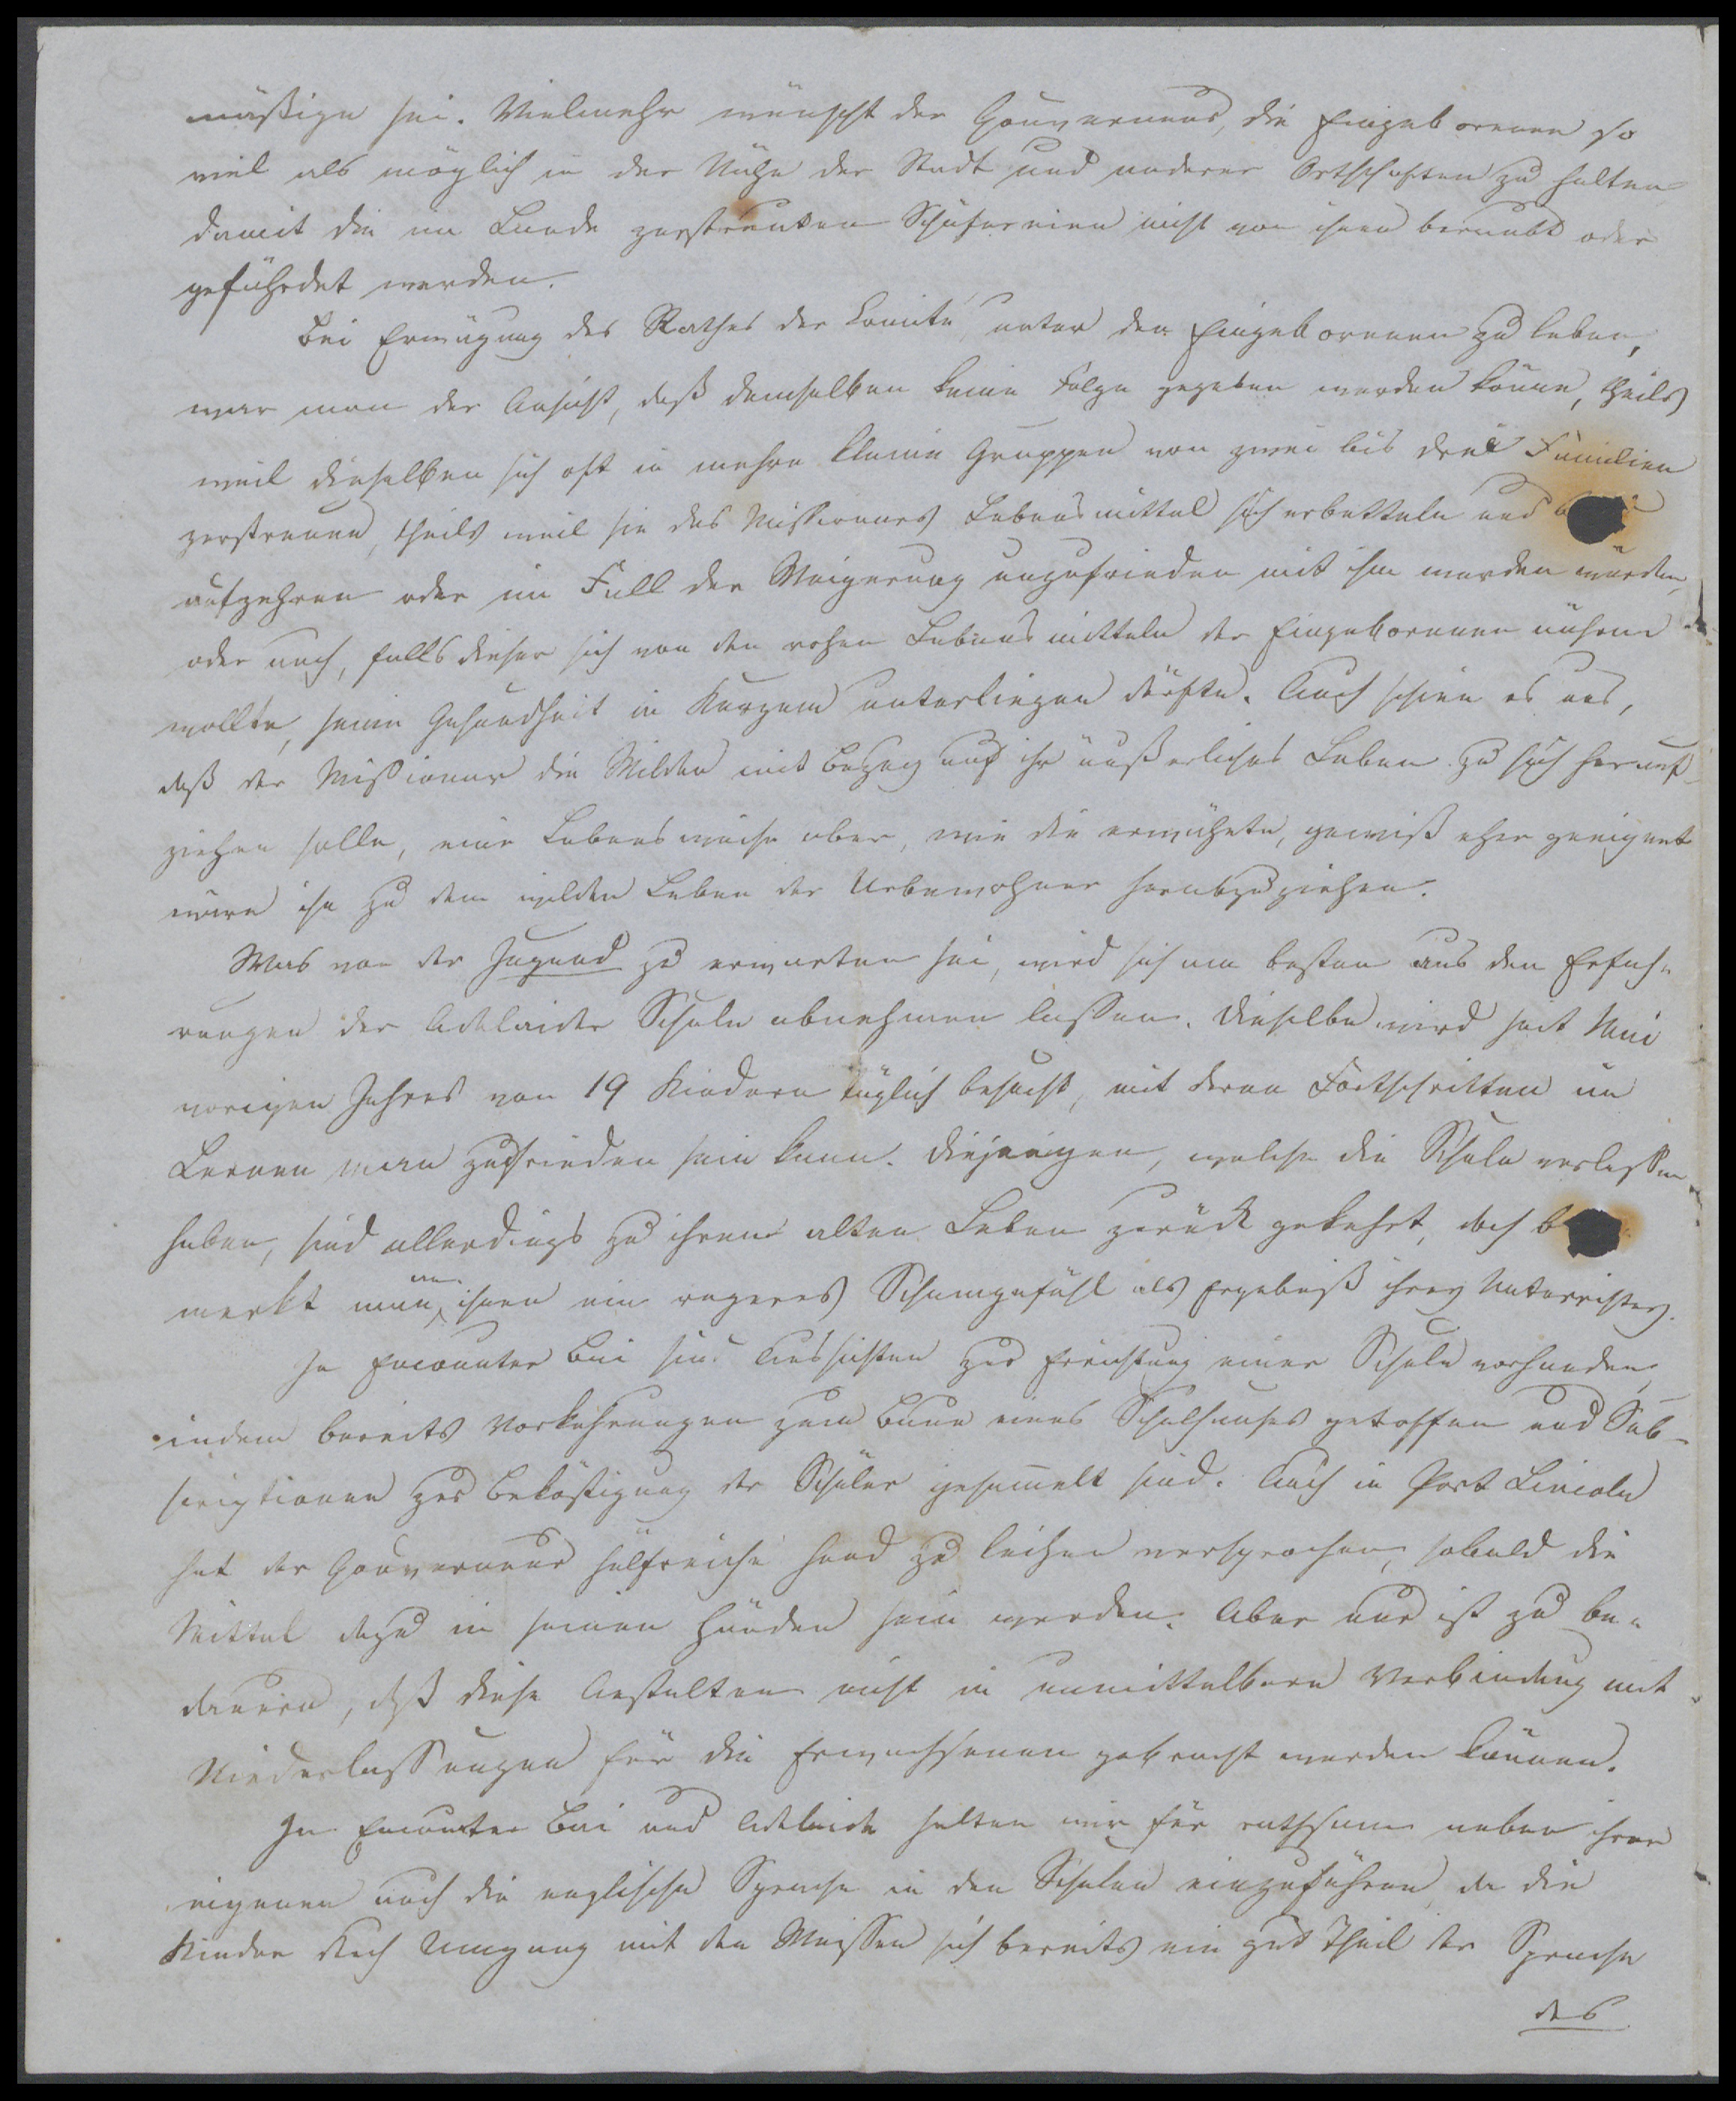 mäßige sei. Vielmehr wünscht der Gouverneur, die Eingeborenen so
viel als möglich in der Nähe der Stadt und anderer Ortschaften zu halten
damit die im Lande zerstreuten Schäfereien nicht von ihnen beraubt oder
gefährdet werden.
Bei Erwägung des Rathes der Comite unter den Eingeborenen zu leben,
war man der Ansicht, daß demselben keine Folge gegeben werden könne, theils
weil dieselben sich oft in mehre kleine Gruppen von zwei bis drei Familien
zerstreuen, theils weil sie des Missionars Lebensmittel sich erbetteln und
aufzehren oder im Fall der Weigerung unzufrieden mit ihm werden würden,
oder auch, falls dieser sich von den rohen Lebensmitteln der Eingeborenen nähren
wollte, seine Gesundheit in Kurzem unterliegen dürfte. Auch schien es uns,
daß der Missionar die Wilden mit Bezug auf ihr äußerliches Leben zu sich herauf-
ziehen solle, eine Lebensweise aber, wie die erwähnte, gewiß eher geeignet
wäre ihn zu dem wilden Leben der Urbewohner herabzuziehen.
Was von der Jugend zu erwarten sei, wird sich am besten aus den Erfah-
rungen der Adelaider Schule abnehmen lassen. Dieselbe wird seit Mai
vorigen Jahres von 19 Kindern täglich besucht, mit deren Fortschritten im
Lernen man zufrieden sein kann. Diejenigen, welche die Schule verlassen
haben, sind allerdings zu ihrem alten Leben zurück gekehrt, doch b
merkt man an ihnen ein regeres Schamgefühl als Ergebniß ihres Unterrichtes.
In Encounter Bai sind Aussichten zur Errichtung einer Schule vorhanden,
indem bereits Vorkehrungen zum Baue eines Schulhauses getroffen und Sub-
scriptionen zur Beköstigung der Schüler gesammelt sind. Auch in Port Lincoln
hat der Gouverneur hülfreiche Hand zu leihen versprochen, sobald die
Mittel dazu in seinen Händen sein werden. Aber nur ist zu be-
dauern, daß diese Anstalten nicht in unmittelbare Verbindung mit
Niederlassungen für die Erwachsenen gebracht werden können.
In Encounter Bai und Adelaide halten wir für rathsam neben ihrer
eigenen auch die englische Sprache in den Schulen einzuführen, da die
Kinder durch Umgang mit den Weissen sich bereits ein gut Theil der Sprache
des